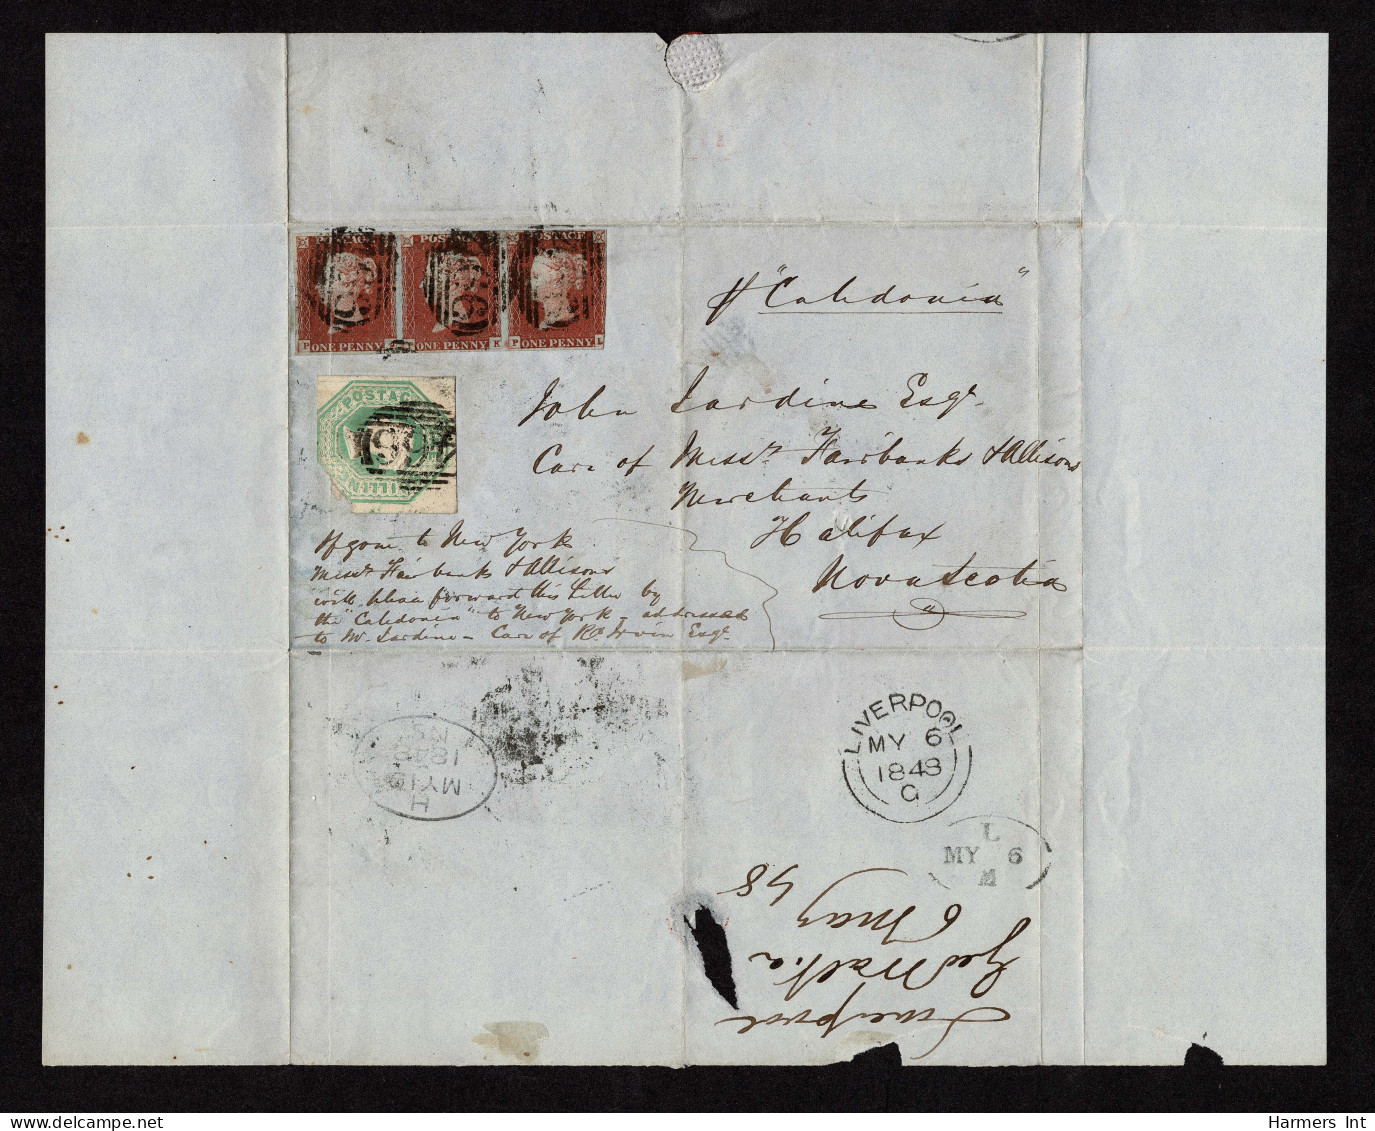 POSTAGE POSTAGE POSTAGE
P ONE PENNY ONE PENNY K P ONE PENNY L
466
p "Caledonia"
POSTAGE
466
SHILLING
John Jardine Esqr.
Care of Messrs Fairbanks & Allisons
Merchants
Halifax
Nova Scotia
If gone to New York
Messrs Fairbanks & Allisons
will please forward this Letter by
the "Caledonia" to New York - addressed
to Mr Jardine - Care of Rt. Irvin Esqr.
LIVERPOOL
MY 6
1848
H
MY 19
1848
N.S
L
MY 6
M
Liverpool
6 May 48
Harmers Int